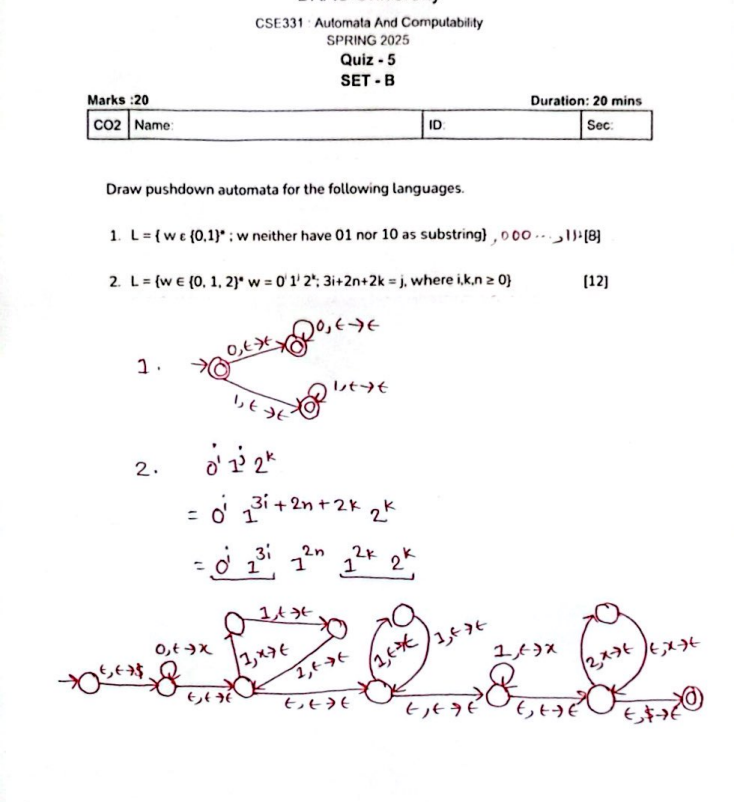 CSE331 · Automata And Computability
SPRING 2025
Quiz - 5
SET - B
Marks :20 Duration: 20 mins
CO2 Name: ID: Sec:
Draw pushdown automata for the following languages.
1. L = { w ϵ {0,1}* ; w neither have 01 nor 10 as substring} , 000 ..., 11: [8]
2. L = {w ∈ {0, 1, 2}* w = 0ⁱ 1ʲ 2ᵏ; 3i+2n+2k = j, where i,k,n ≥ 0} [12]
0,ϵ→ϵ
0,ϵ→ϵ
1.
1,ϵ→ϵ
1,ϵ→ϵ
2. 0ⁱ 1ʲ 2ᵏ
= 0ⁱ 1³ⁱ⁺²ⁿ⁺²ᵏ 2ᵏ
= 0ⁱ 1³ⁱ 1²ⁿ 1²ᵏ 2ᵏ
1,ϵ→ϵ
0,ϵ→x 1,x→ϵ 1,ϵ→ϵ 1,ϵ→ϵ 1,ϵ→ϵ 1,ϵ→x 2,x→ϵ ϵ,x→ϵ
ϵ,ϵ→$ ϵ,ϵ→ϵ ϵ,ϵ→ϵ ϵ,ϵ→ϵ ϵ,ϵ→ϵ ϵ,$→ϵ